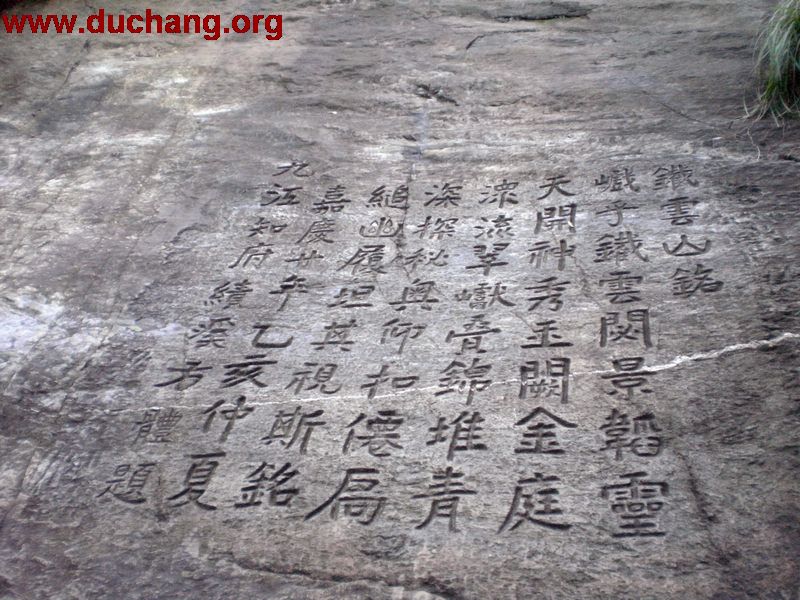 鐵雲山銘
鐵雲閟景韜靈
天開神秀玉闕金庭
流翠巘錦堆青
深探秘奧仰扣僊扃
縋幽履坦其視斯銘
嘉慶廿年乙亥仲夏
九江知府績溪方體題
www.duchang.org